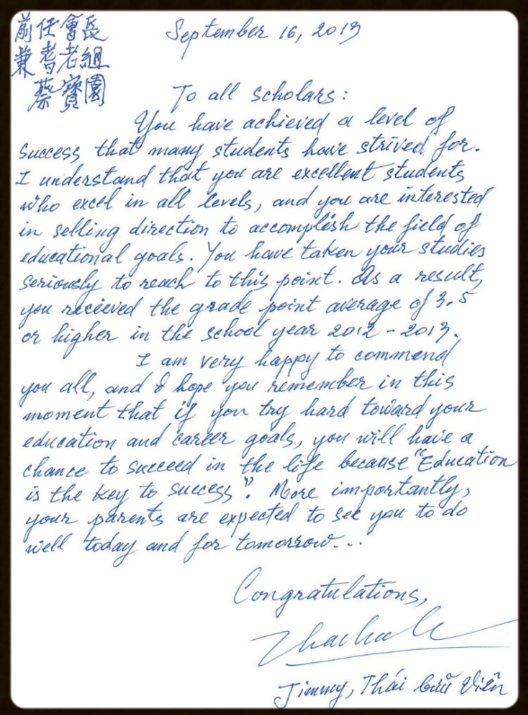 前任會長
兼耆老組
蔡寶園
September 16, 2013
To all scholars:
You have achieved a level of
success that many students have strived for.
I understand that you are excellent students
who excel in all levels, and you are interested
in selling direction to accomplish the field of
educational goals. You have taken your studies
seriously to reach to this point. As a result,
you recieved the grade point average of 3.5
or higher in the school year 2012 - 2013.
I am very happy to commend
you all, and I hope you remember in this
moment that if you try hard toward your
education and career goals, you will have a
chance to succeed in the life because "Education
is the key to success". More importantly,
your parents are expected to see you to do
well today and for tomorrow...
Congratulations,
Jimmy, Thái Bửu Viên